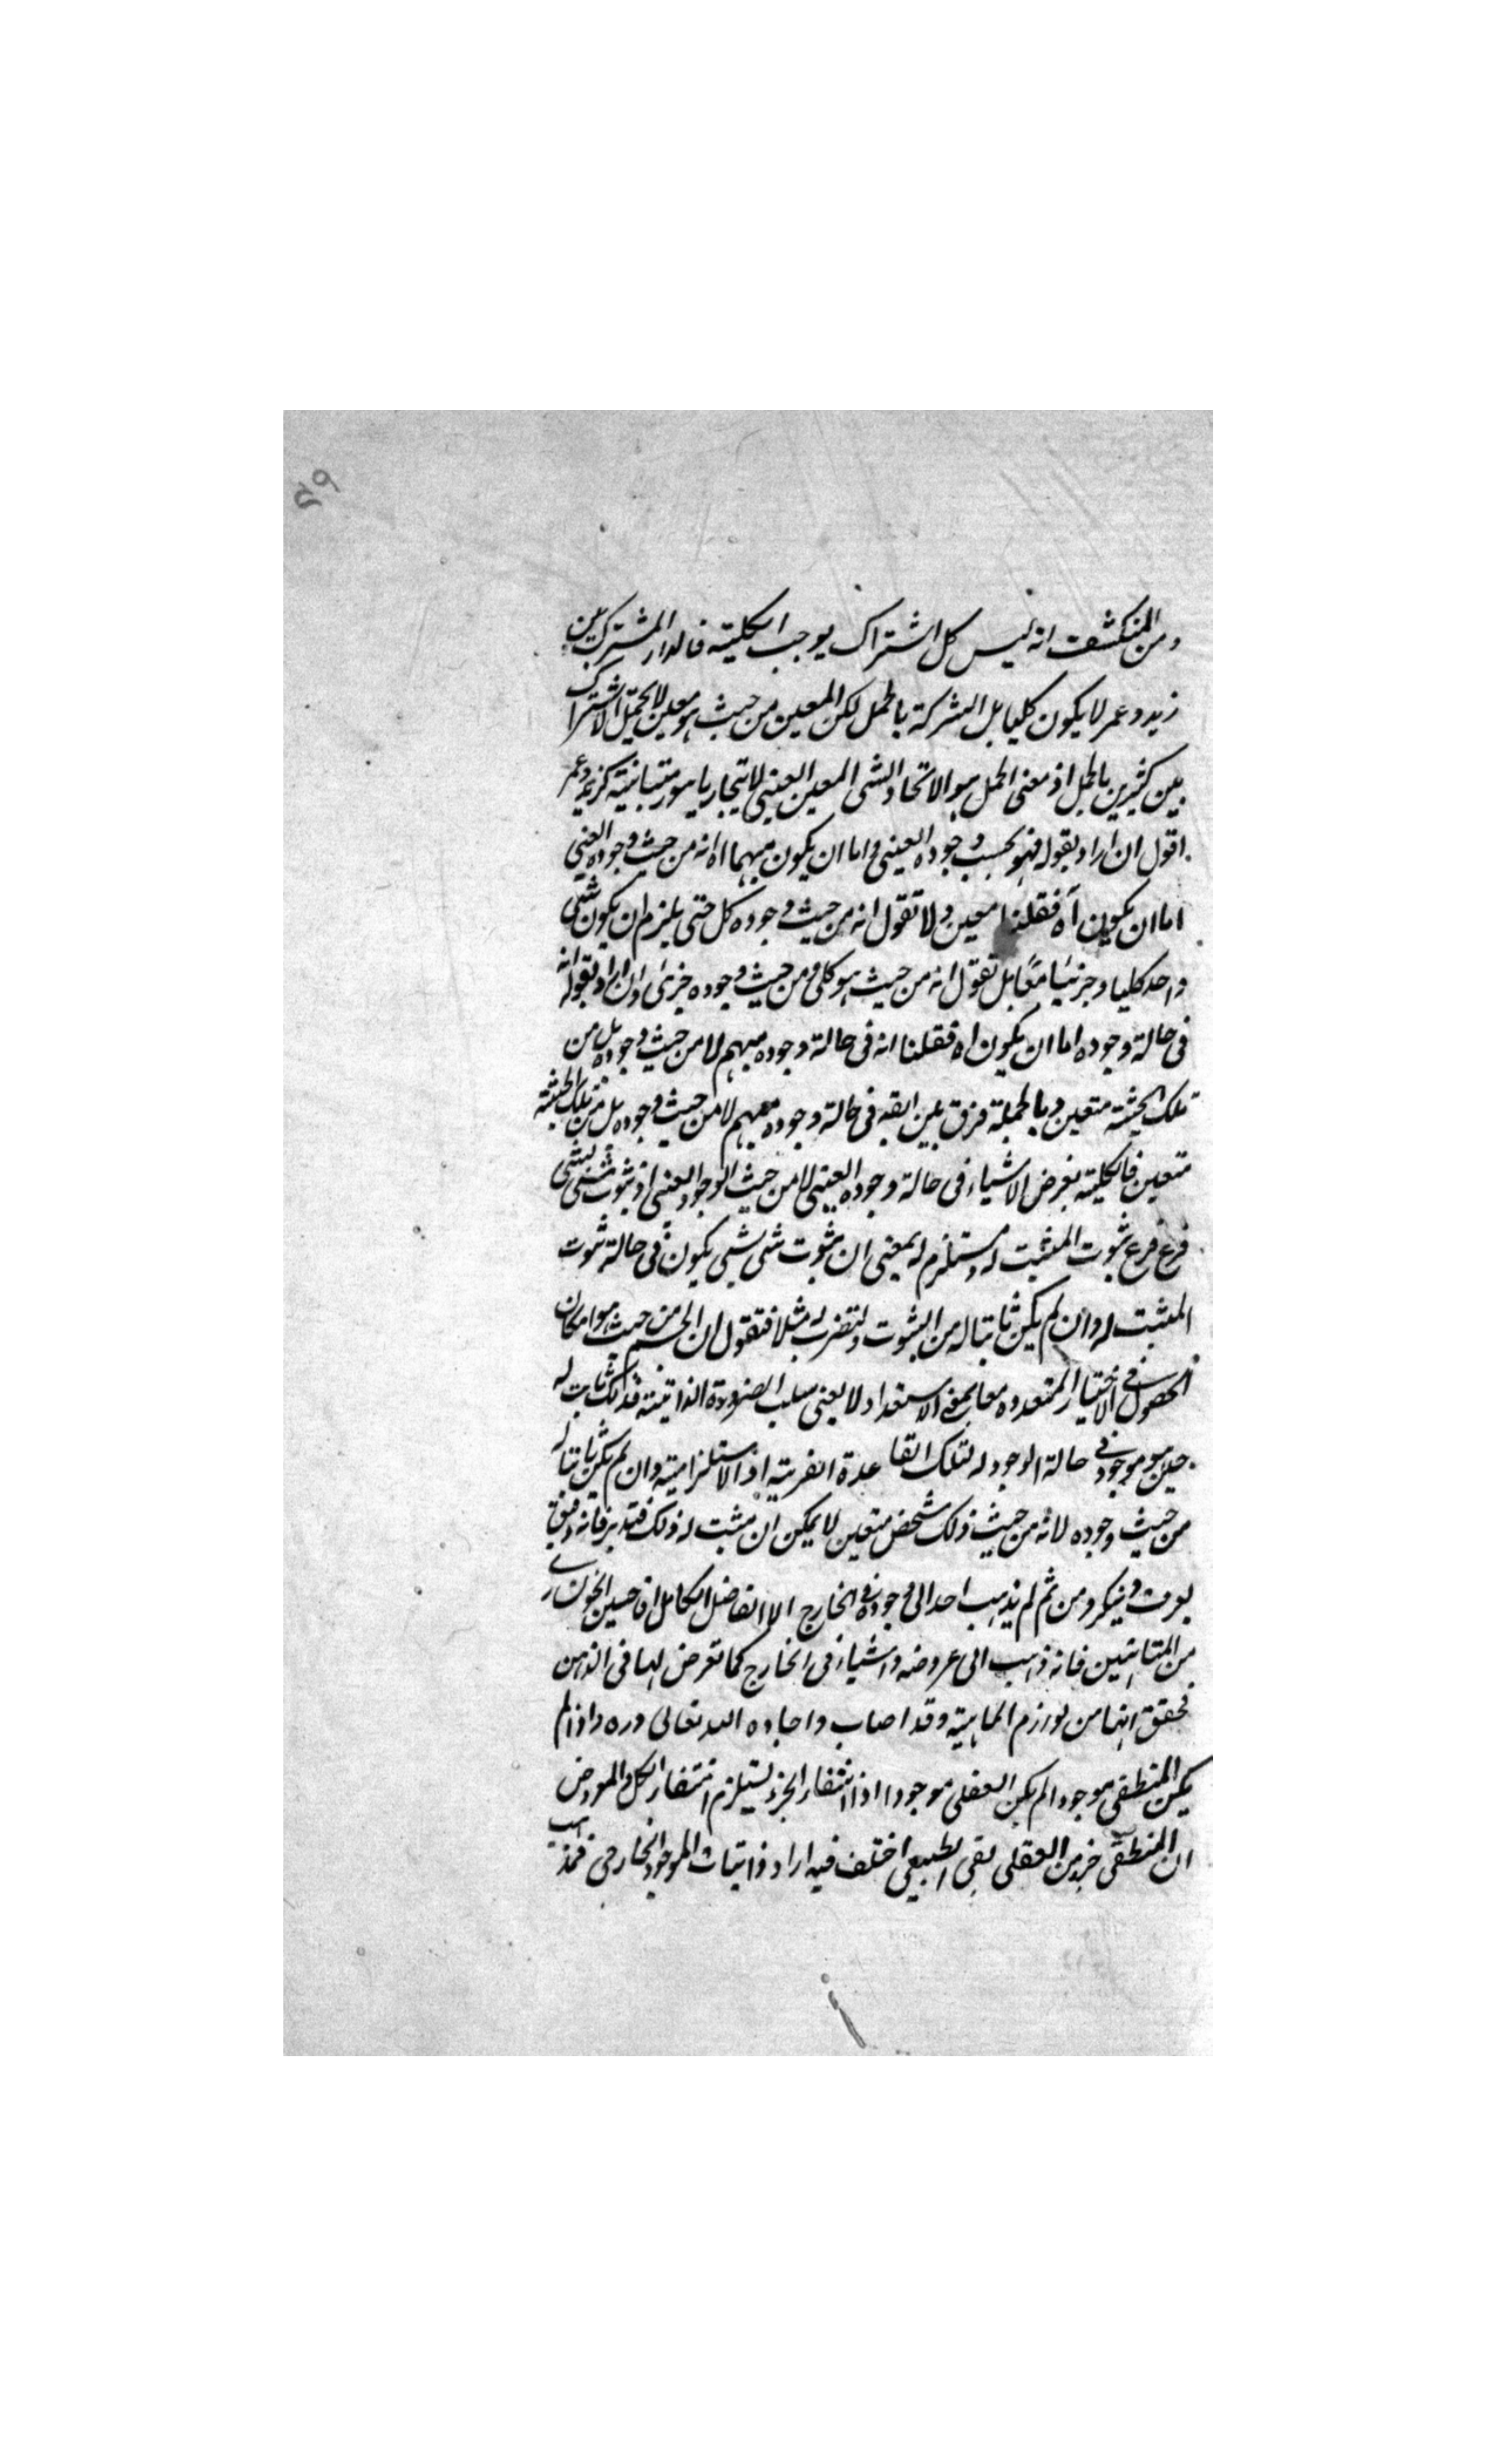 ٥٩
ومن المنكشف انه ليس كل اشتراك يوجب الكلية فالدار المشترك بين
زيد وعمر لا يكون كليا بل الشركة بالحمل لكن المعين من حيث هو معين لا يحتمل الاشتراك
بين كثيرين بالحمل اذ معنى الحمل هو الاتحاد والشى المعين العينى لا يتحد بامور متباينة كزيد وعمر
اقول ان اراد بقوله فهو بحسب وجوده العينى واما ان يكون مبهما اه انه من حيث وجوده العينى
اما ان يكون آه فقلنا معين ولا تقول انه من حيث وجوده كل حتى يلزم ان يكون شئى
واحد كليا وجزئيا معا بل تقول انه من حيث هو كلى ومن حيث وجوده جزئى وان اراد بقوله انه
فى حالة وجوده اما ان يكون اه فقلنا انه فى حالة وجوده مبهم لا من حيث وجوده بل من
تلك الحيثية متعين وبالجملة فرق بين انه فى حالة وجوده مبهم لا من حيث وجوده بل من تلك الحيثية
متعين فالكلية يعرض الاشياء فى حالة وجوده العينى لا من حيث الوجود العينى اذ ثبوت شئى لشئى
فرع فرع ثبوت المثبت له ومستلزم له بمعنى ان ثبوت شى لشى يكون فى حالة ثبوت
المثبت له وان لم يكن ثابتا له من الثبوت ولنضرب له مثلا فنقول ان الجسم من حيث هو امكان
الحصول فى الاحياز المتعدده معا بمعنى الاستعداد لا بمعنى سلب الضرورة الذاتية فذلك ثابت له
حين هو موجود فى حالة الوجود له لتلك القاعدة الفرعية او الاستلزامية وان لم يكن ثابتا له
من حيث وجوده لانه من حيث ذلك شخص متعين لا يمكن ان يثبت له ذلك فتدبر فانه دقيق
يعرف وينكر ومن ثم لم يذهب احد الى وجوده فى الخارج الا الفاضل الكامل اقا حسين الخونسارى
من المتاخرين فانه ذهب الى عروضه والاشياء فى الخارج كما تعرض لها فى الذهن
فحقق انها من لوازم الماهية وقد اصاب واجاد ه الله تعالى دره واذا لم
يكن المنطقى موجودا لم يكن العقلى موجودا اذ انتفاء الجزء يستلزم انتفاء الكل والمفروض
ان المنطقى جزء من العقلى بقى الطبيعى اختلف فيه اراد ذاتيات الموجود الخارجى فمذهب